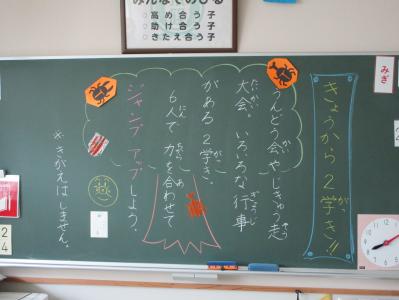 みんなでのびる
○高め合う子
○助け合う子
○きたえ合う子
みぎ
きょうから2学き!!
うんどう会やじきゅう走
大会。いろいろな行事
がある2学き。
6人で力を合わせて
ジャンプアップしよう。
※きがえはしません。